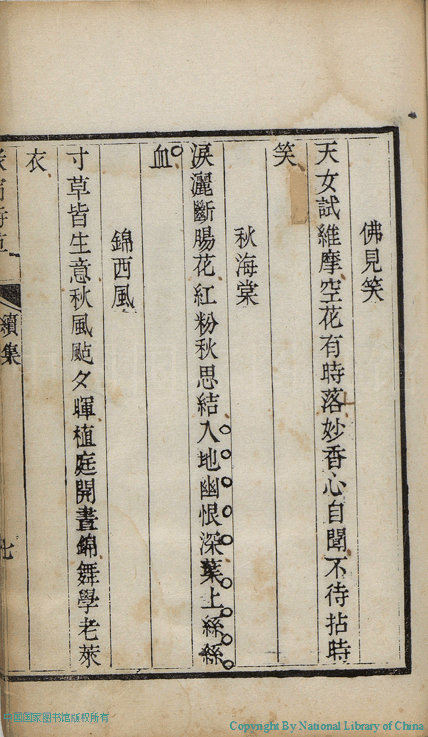 佛見笑
天女試維摩空花有時落妙香心自聞不待拈時
笑
秋海棠
淚灑斷腸花紅粉秋思結入地幽恨深葉上絲絲
血
錦西風
寸草皆生意秋風颭夕暉植庭開晝錦舞學老萊
衣
續集
七
中国国家图书馆版权所有
Copyright By National Library of China